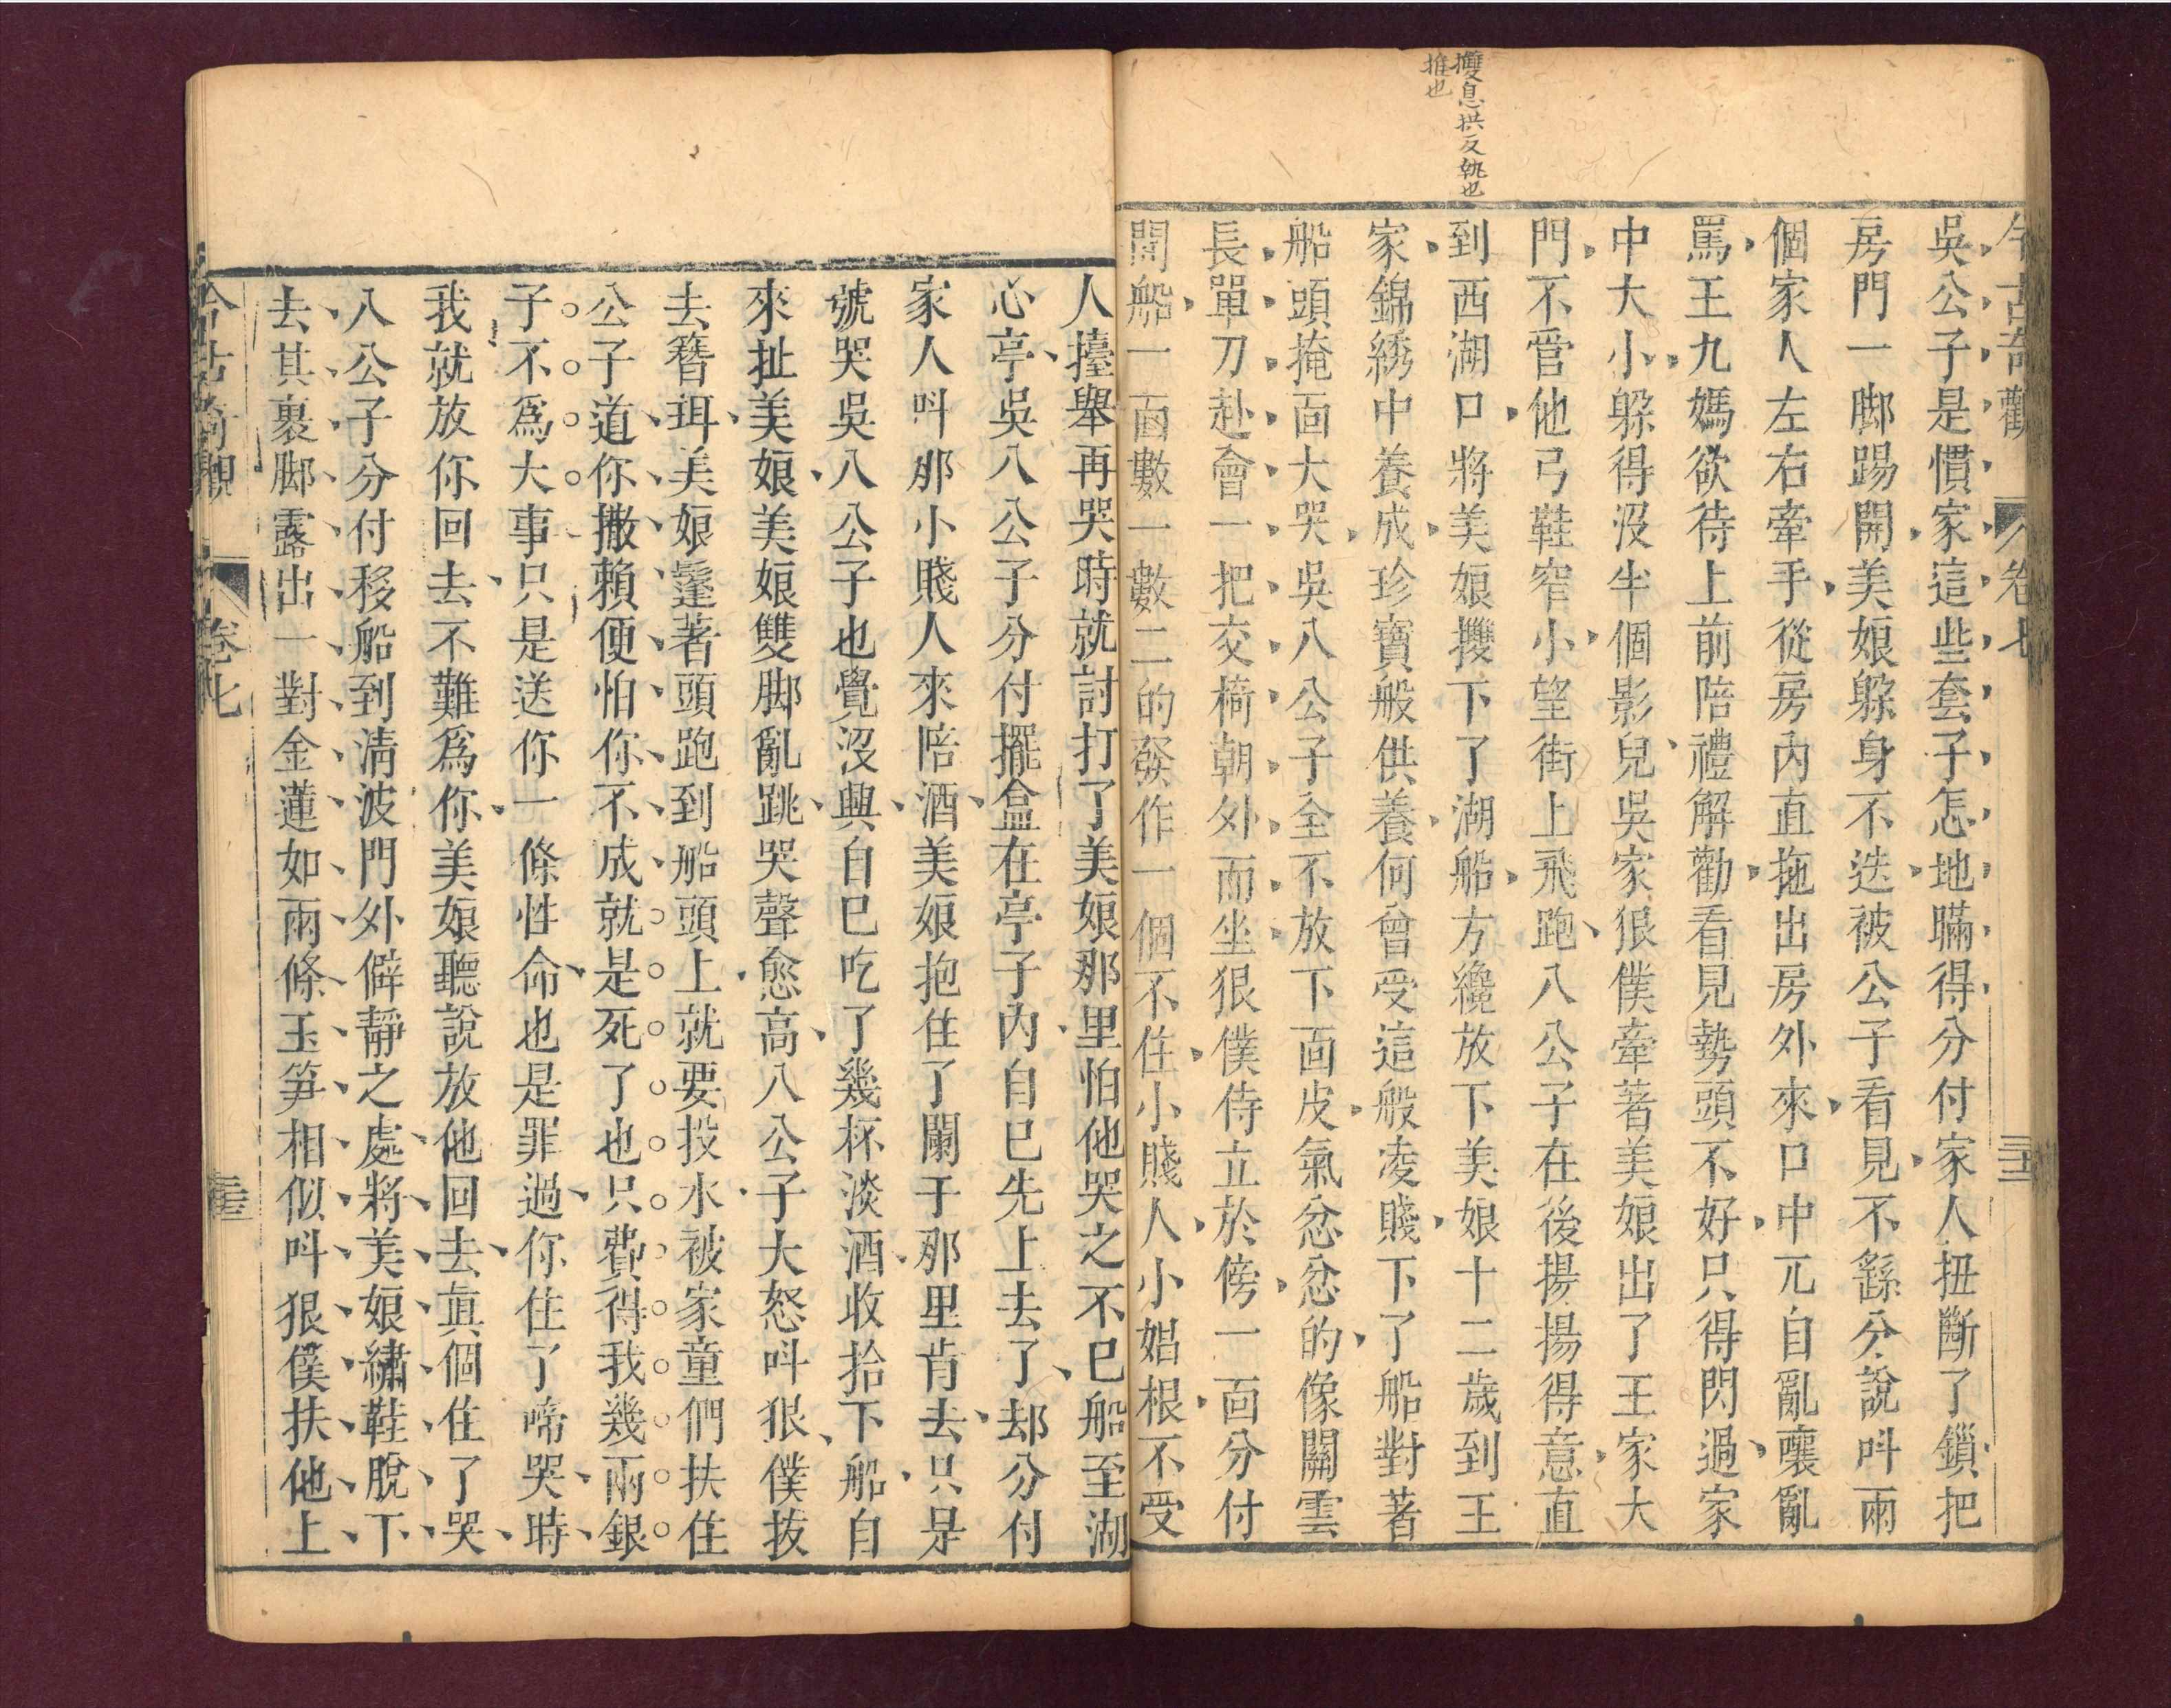 㩳息拱反執也
推也
今古奇觀 卷七 三十二
吳公子是慣家這些套子怎地瞞得分付家人扭斷了鎖把
房門一脚踢開美娘躲身不迭被公子看見不繇分說呌兩
個家人左右牽手從房內直拖出房外來口中兀自亂嚷亂
罵王九媽欲待上前陪禮解勸看見勢頭不好只得閃過家
中大小躲得沒半個影兒吳家狠僕牽著美娘出了王家大
門不管他弓鞋窄小望街上飛跑八公子在後揚揚得意直
到西湖口將美娘㩳下了湖船方纔放下美娘十二歲到王
家錦綉中養成珍寶般供養何曾受這般凌賤下了船對著
船頭掩面大哭吳八公子全不放下面皮氣忿忿的像關雲
長單刀赴會一把交椅朝外而坐狠僕侍立於傍一面分付
開船一面數一數二的發作一個不住小賤人小娼根不受
人擡舉再哭時就討打了美娘那里怕他哭之不已船至湖
心亭吳八公子分付擺盒在亭子內自已先上去了却分付
家人呌那小賤人來陪酒美娘抱住了闌干那里肯去只是
號哭吳八公子也覺沒興自已吃了幾杯淡酒收拾下船自
來扯美娘美娘雙脚亂跳哭聲愈高八公子大怒呌狠僕拔
去簪珥美娘鬔著頭跑到船頭上就要投水被家童們扶住
公子道你撒賴便怕你不成就是死了也只費得我幾兩銀
子不爲大事只是送你一條性命也是罪過你住了啼哭時
我就放你回去不難爲你美娘聽說放他回去眞個住了哭
八公子分付移船到淸波門外僻靜之處將美娘繡鞋脫下
去其裹脚露出一對金蓮如兩條玉笋相似呌狠僕扶他上
今古奇觀 卷七